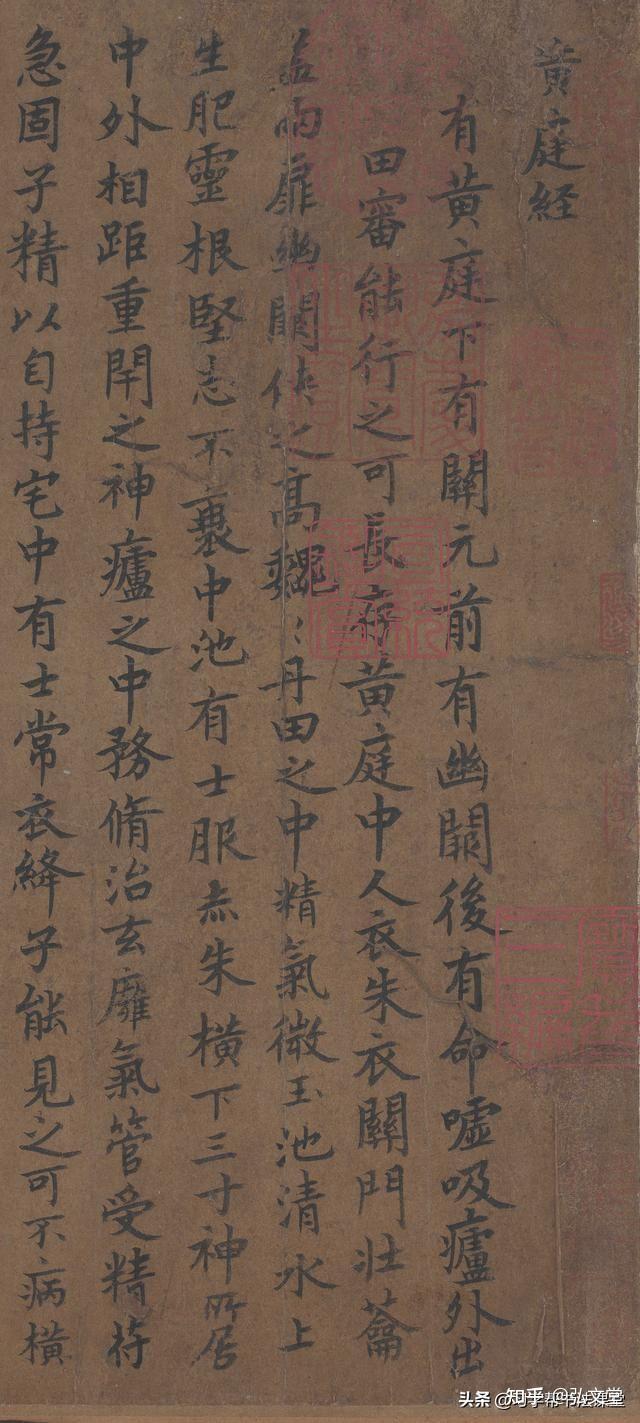 黄庭經
有黄庭下有關元前有幽闕後有命噓吸廬外出
田審能行之可長存黄庭中人衣朱衣關門壮籥
盖兩扉幽闕侠之高巍〻丹田之中精氣微玉池清水上
生肥靈根堅志不衰中池有士服赤朱横下三寸神所居
中外相距重閇之神廬之中務脩治玄廱氣管受精符
急固子精以自持宅中有士常衣絳子能見之可不病横
知乎 @弘文堂
头条